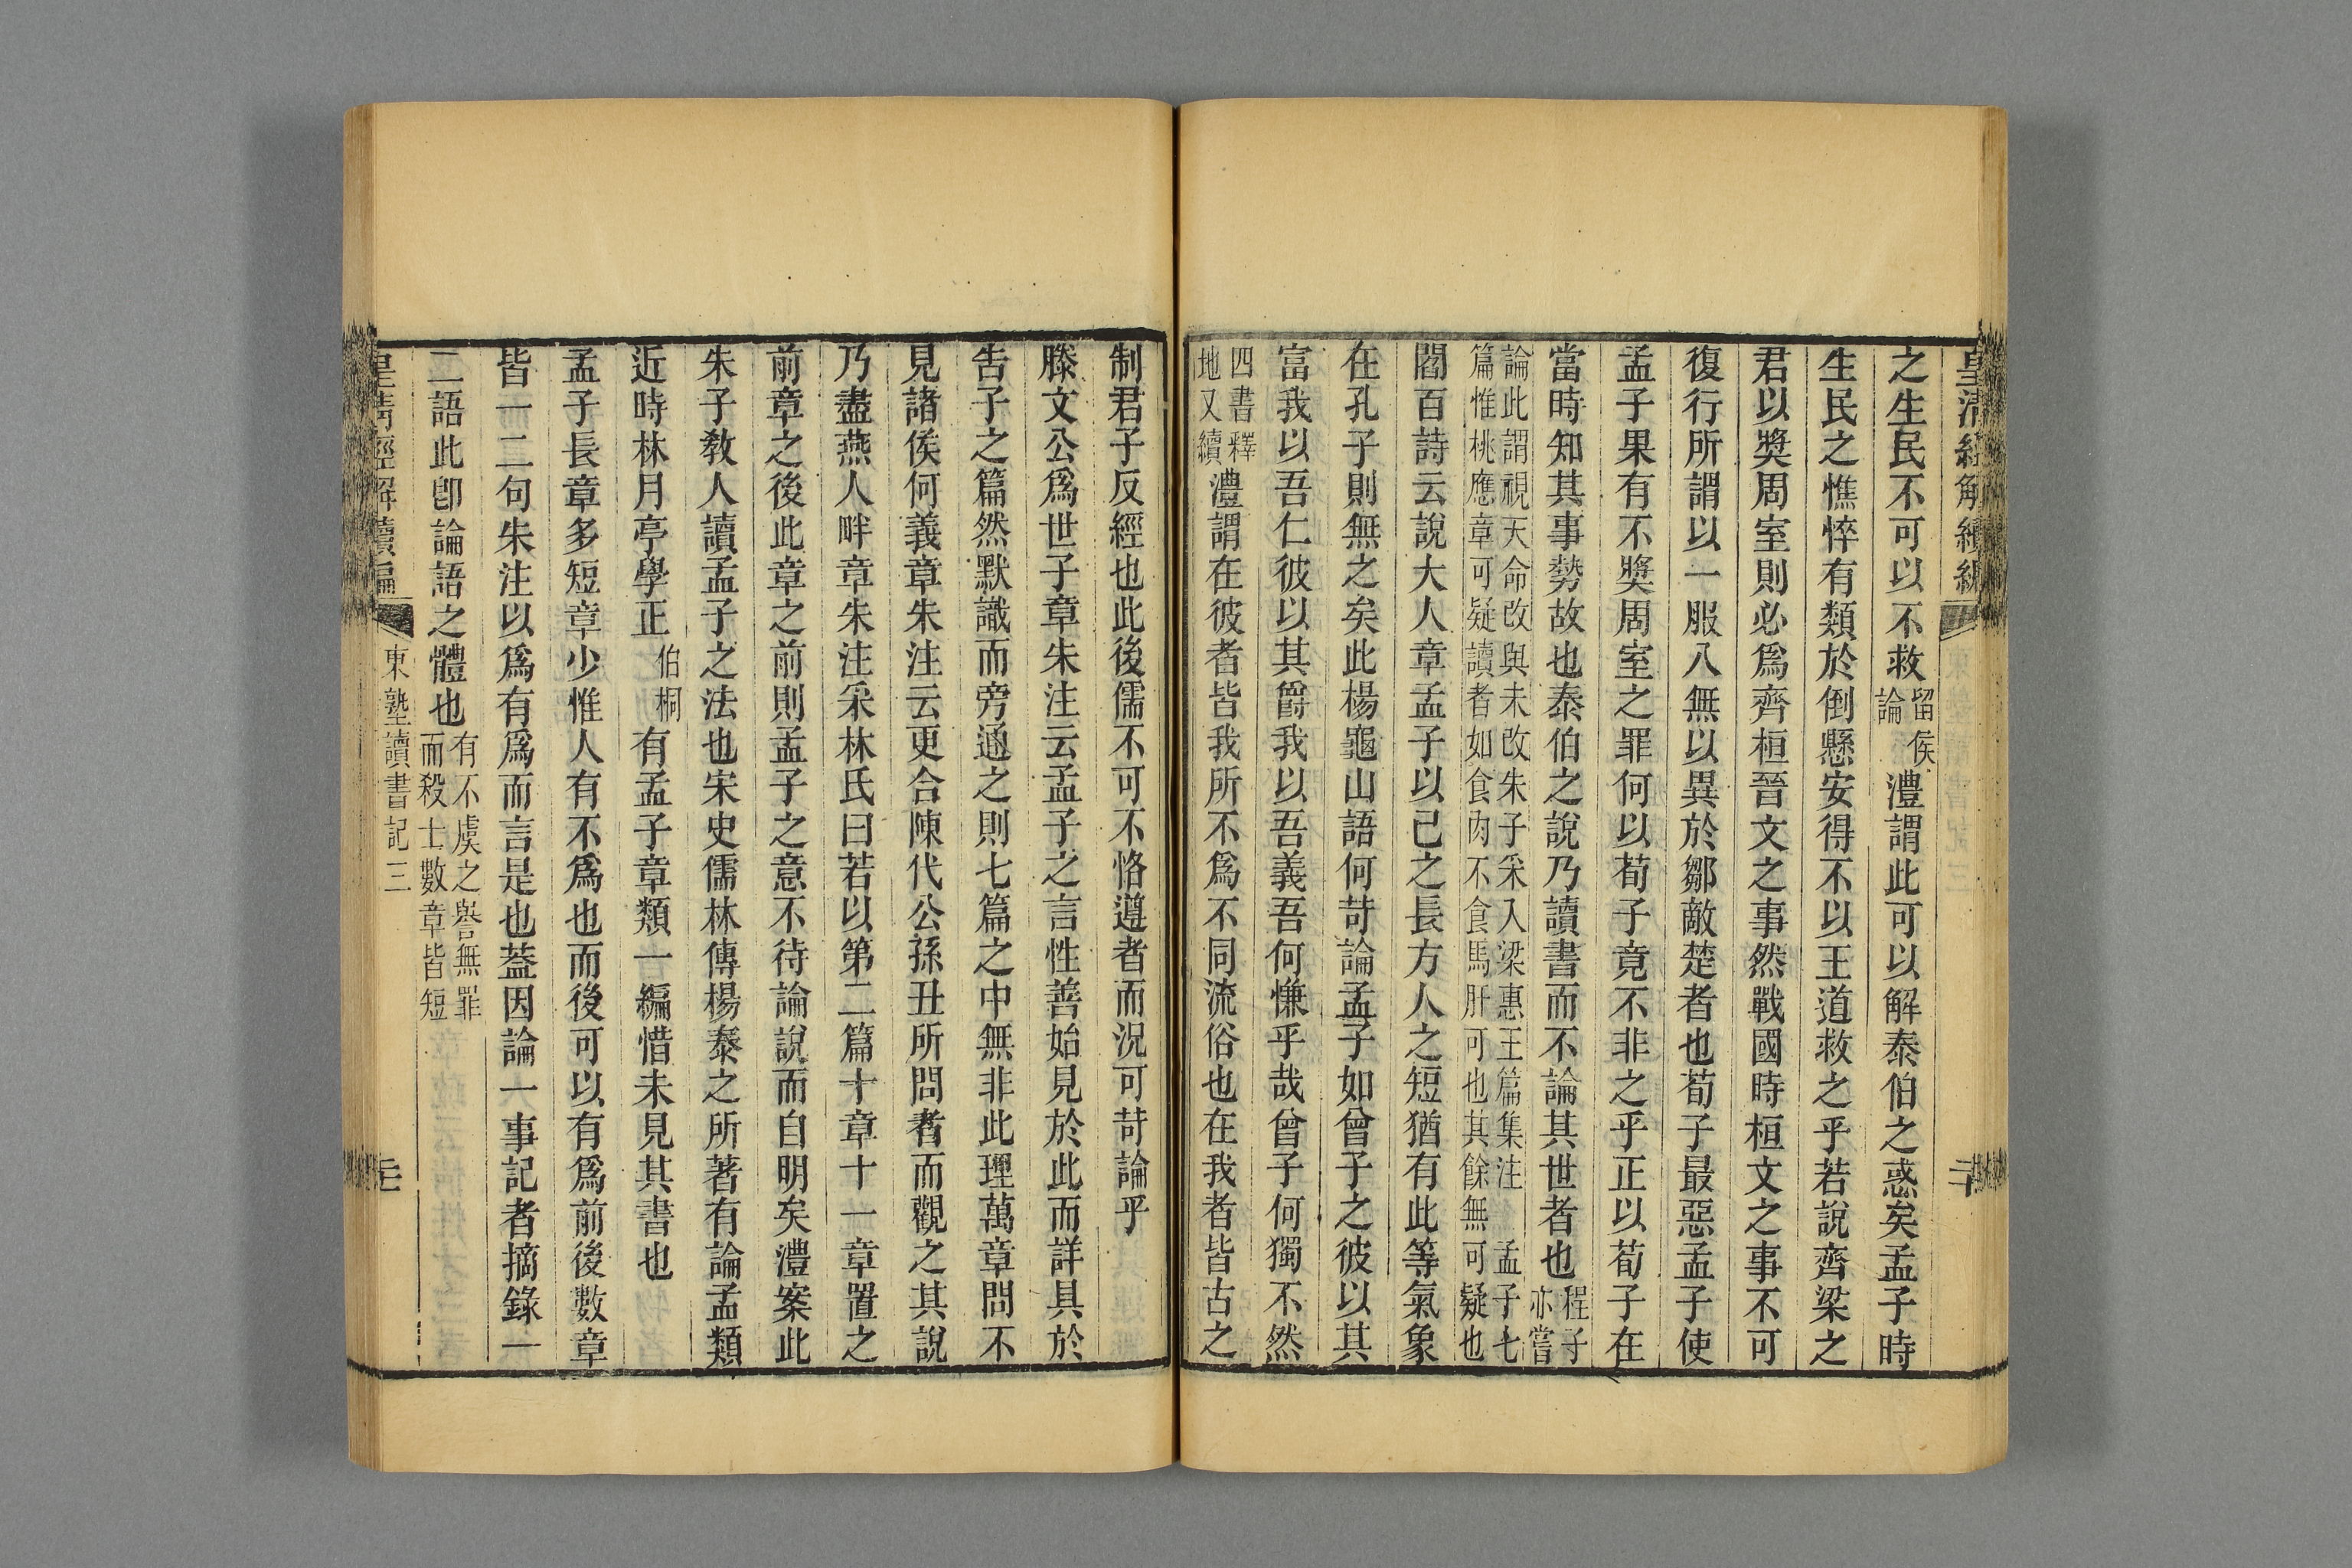 皇清經解續編
二十
之生民不可以不救留侯論澧謂此可以解泰伯之惑矣孟子時
生民之憔悴有類於倒懸安得不以王道救之乎若說齊梁之
君以獎周室則必爲齊桓晉文之事然戰國時桓文之事不可
復行所謂以一服八無以異於鄒敵楚者也荀子最惡孟子使
孟子果有不獎周室之罪何以荀子竟不非之乎正以荀子在
當時知其事勢故也泰伯之說乃讀書而不論其世者也程子亦嘗
論此謂視天命改與未改朱子采入梁惠王篇集注 孟子七
篇惟桃應章可疑讀者如食肉不食馬肝可也其餘無可疑也
閻百詩云說大人章孟子以己之長方人之短猶有此等氣象
在孔子則無之矣此楊龜山語何苛論孟子如曾子之彼以其
富我以吾仁彼以其爵我以吾義吾何慊乎哉曾子何獨不然
四書釋地又續澧謂在彼者皆我所不爲不同流俗也在我者皆古之
制君子反經也此後儒不可不恪遵者而況可苛論乎
滕文公爲世子章朱注云孟子之言性善始見於此而詳具於
告子之篇然默識而旁通之則七篇之中無非此理萬章問不
見諸侯何義章朱注云更合陳代公孫丑所問者而觀之其說
乃盡燕人畔章朱注采林氏曰若以第二篇十章十一章置之
前章之後此章之前則孟子之意不待論說而自明矣澧案此
朱子教人讀孟子之法也宋史儒林傳楊泰之所著有論孟類
近時林月亭學正伯桐有孟子章類一編惜未見其書也
孟子長章多短章少惟人有不爲也而後可以有爲前後數章
皆一二句朱注以爲有爲而言是也蓋因論一事記者摘錄一
二語此卽論語之體也有不虞之譽無罪而殺士數章皆短
皇清經解續編
東塾讀書記三